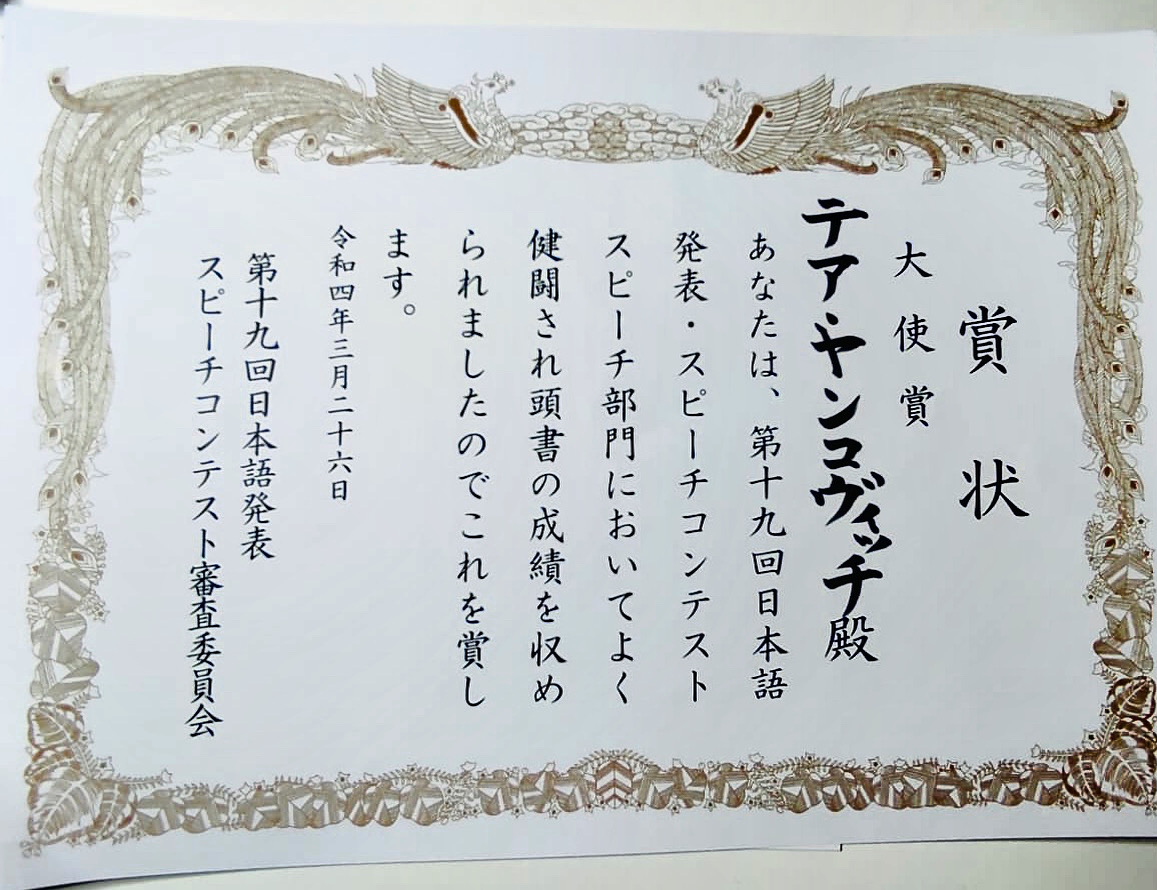 賞状
大使賞
テア・ヤンコヴィッチ殿
あなたは、第十九回日本語
発表・スピーチコンテスト
スピーチ部門においてよく
健闘され頭書の成績を収め
られましたのでこれを賞し
ます。
令和四年三月二十六日
第十九回日本語発表
スピーチコンテスト審査委員会